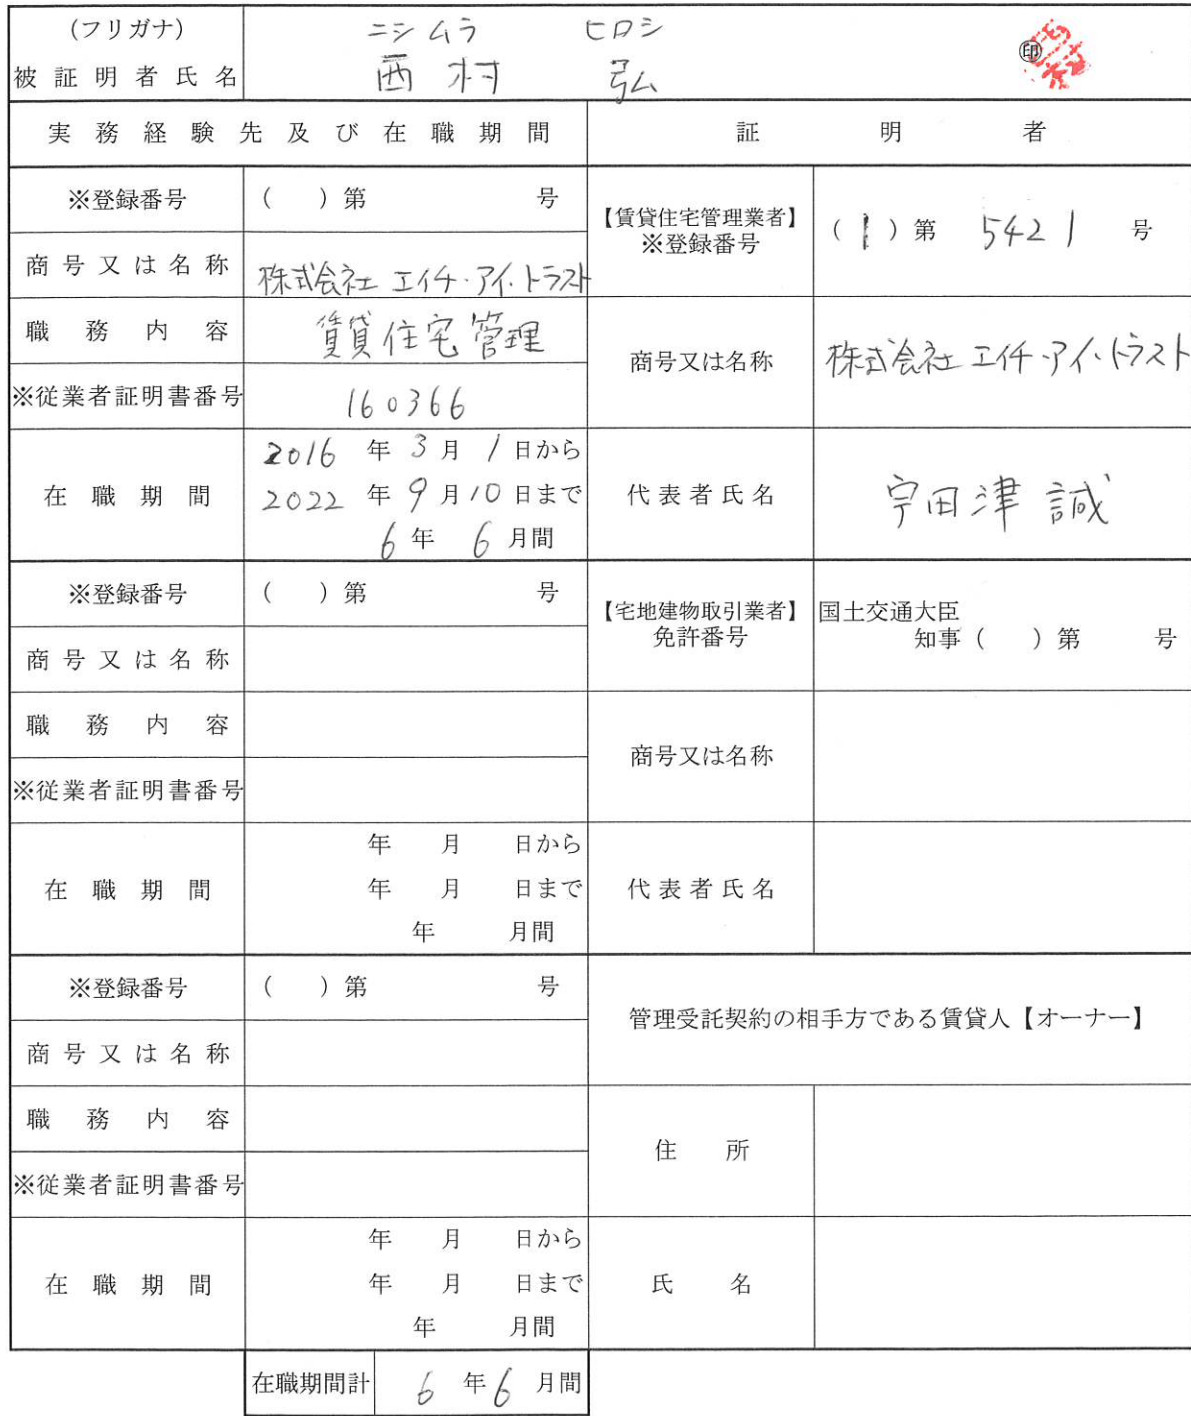 (フリガナ) ニシムラ ヒロシ
被証明者氏名 西村 弘 ㊞
実務経験先及び在職期間 証明者
※登録番号 ( )第 号
【賃貸住宅管理業者】 ※登録番号 (1)第 5421 号
商号又は名称 株式会社 エイチ・アイ・トラスト
職務内容 賃貸住宅管理
商号又は名称 株式会社 エイチ・アイ・トラスト
※従業者証明書番号 160366
在職期間 2016 年 3 月 1 日から
2022 年 9 月 10 日まで
6 年 6 月間
代表者氏名 宇田津 誠
※登録番号 ( )第 号
【宅地建物取引業者】 免許番号
国土交通大臣
知事( )第 号
商号又は名称
職務内容
商号又は名称
※従業者証明書番号
在職期間 年 月 日から
年 月 日まで
年 月間
代表者氏名
※登録番号 ( )第 号
管理受託契約の相手方である賃貸人【オーナー】
商号又は名称
職務内容
住所
※従業者証明書番号
在職期間 年 月 日から
年 月 日まで
年 月間
氏名
在職期間計 6 年 6 月間